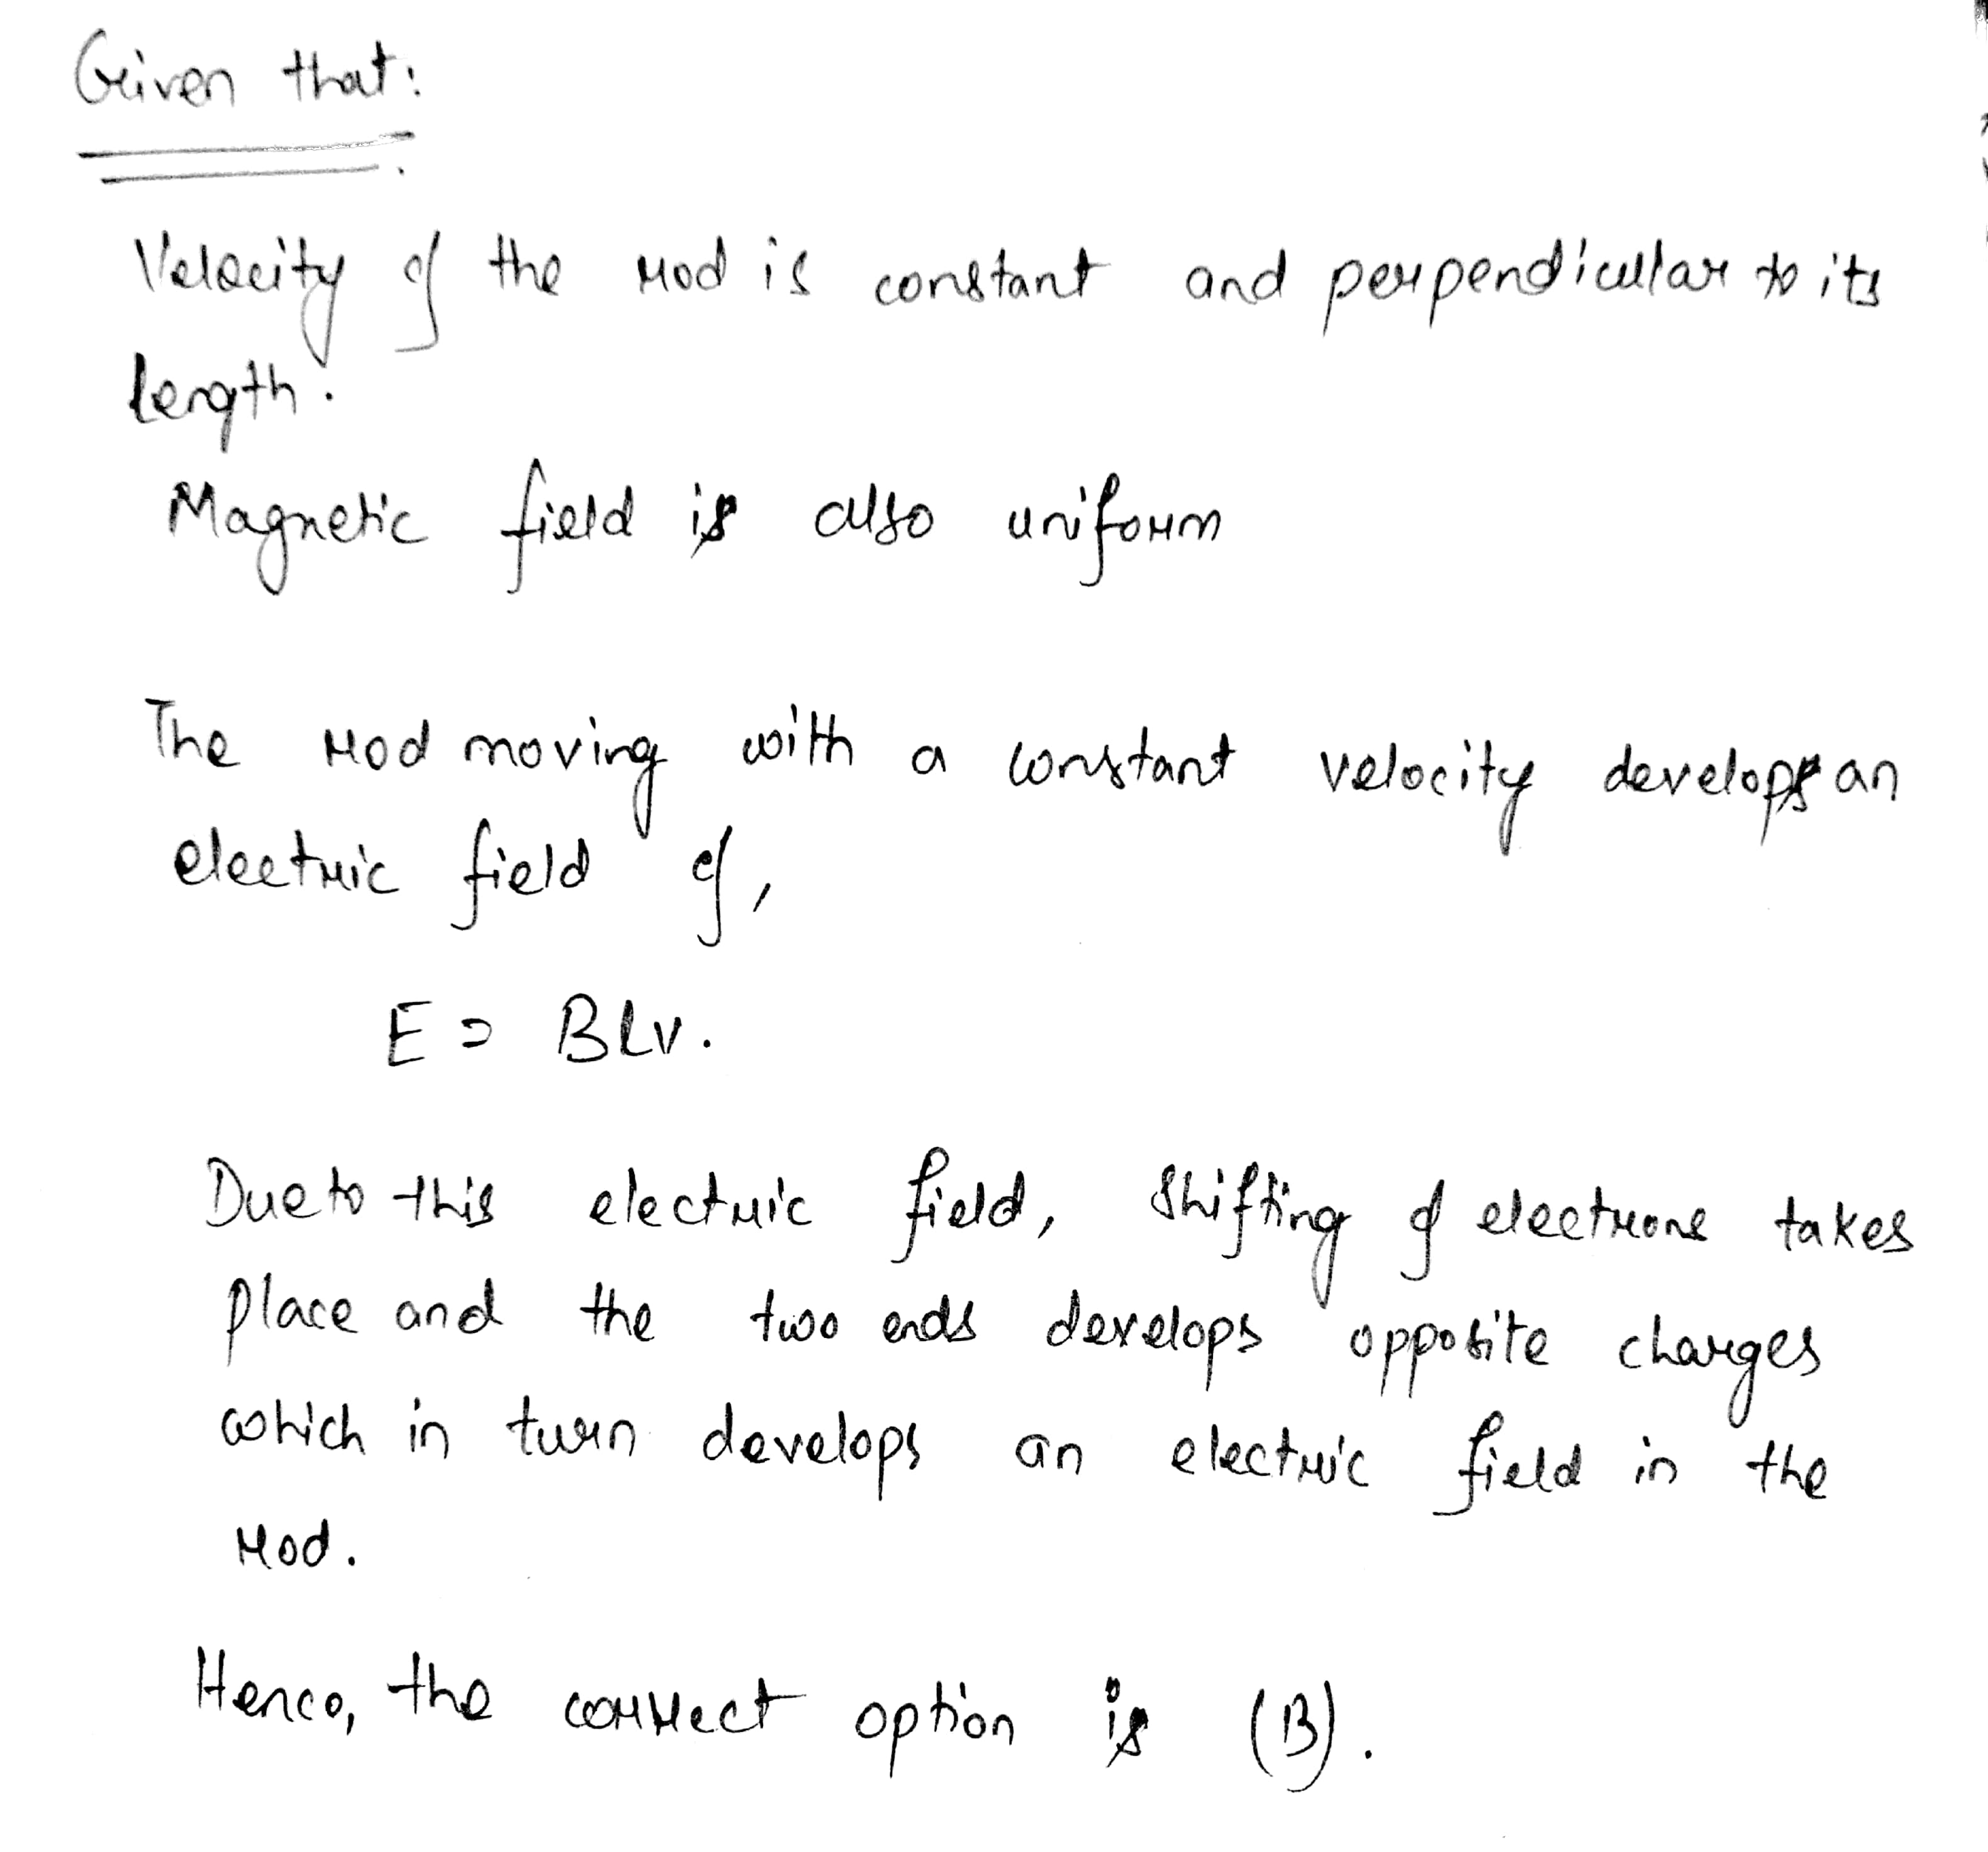 Given that:
Velocity of the rod is constant and perpendicular to its
length.
Magnetic field is also uniform
The rod moving with a constant velocity develops an
electric field of,
E = BLV.
Due to this electric field, shifting of electrons takes
place and the two ends develops opposite charges
which in turn develops an electric field in the
rod.
Hence, the correct option is (B).